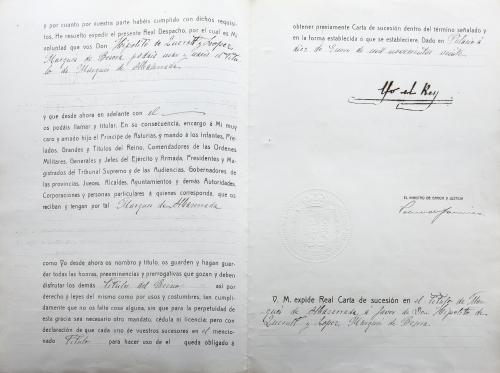 y por cuanto por nuestra parte habéis cumplido con dichos requisi-
tos, He resuelto expedir el presente Real Despacho, por el cual es Mi
voluntad que vos Don Hipolito de Queralt y Lopez
Marques de Besora podais usar y useis el titu
lo de Marques de Albaserrada
y que desde ahora en adelante con el
os podáis llamar y titular. En su consecuencia, encargo á Mi muy
caro y amado hijo el Príncipe de Asturias, y mando á los Infantes, Pre-
lados, Grandes y Títulos del Reino, Comendadores de las Ordenes
Militares, Generales y Jefes del Ejército y Armada, Presidentes y Ma-
gistrados del Tribunal Supremo y de las Audiencias, Gobernadores de
las provincias, Jueces, Alcaldes, Ayuntamientos y demás Autoridades,
Corporaciones y personas particulares á quienes corresponda, que os
reciban y tengan por tal Marques de
como Yo desde ahora os nombro y titulo, os guarden y hagan guar-
dar todas las honras, preeminencias y prerrogativas que gozan y deben
disfrutar los demás Titulos del Reino así por
derecho y leyes del mismo como por usos y costumbres, tan cumpli-
damente que no os falte cosa alguna, sin que para la perpetuidad de
esta gracia sea necesario otro mandato, cédula ni licencia; pero con
declaración de que cada uno de vuestros sucesores en el mencio-
nado Titulo para hacer uso de él queda obligado á
obtener previamente Carta de sucesión dentro del término señalado y
en la forma establecida ó que se estableciere. Dado en Palacio á
diez de Enero de mil novecientos veinte
Yo el Rey
EL MINISTRO DE GRACIA Y JUSTICIA
V. M. expide Real Carta de sucesión en el Titulo de Mar
qués de á favor de Don Hipolito de
Queralt y Lopez, Marques de Besora